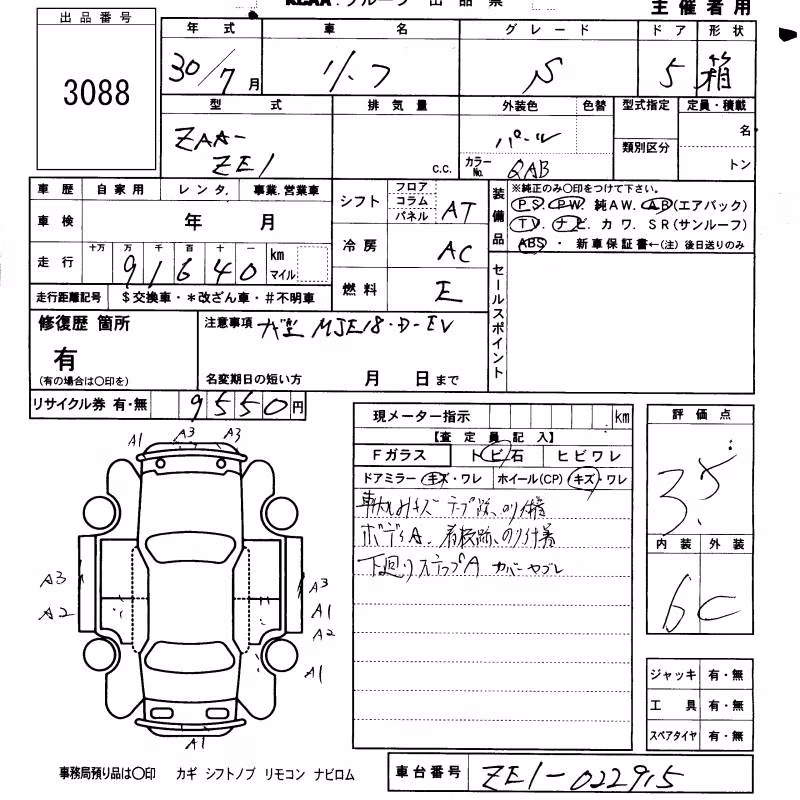 KCAA グループ 出品票
主催者用
出品番号
3088
年式 車名 グレード ドア 形状
30/7月 リーフ S 5 箱
型式 排気量 外装色 色替 型式指定 定員・積載
ZAA-
ZE1
c.c. パール
カラーNo. QAB
類別区分
名
トン
車歴 自家用 レンタ. 事業.営業車
車検 年 月
走行 十万 万 千 百 十 一
91640 km マイル
走行距離記号 $交換車・*改ざん車・#不明車
シフト フロア コラム パネル AT
冷房 AC
燃料 E
装備品
※純正のみ○印をつけて下さい。
PS. PW. 純AW. AB(エアバック)
TV. ナビ. カワ. SR(サンルーフ)
ABS・ 新車保証書←(注)後日送りのみ
セールスポイント
修復歴 箇所
有
(有の場合は○印を)
注意事項 MJE18-D-EV
名変期日の短い方 月 日まで
リサイクル券 有・無 9550円
現メーター指示 km
【査定員記入】
Fガラス トビ石 ヒビワレ
ドアミラー キズ・ワレ ホイール(CP) キズ・ワレ
車内スリキズ テープ跡、のり付着
ボディA. 看板跡、のり付着
下廻りステップA カバーヤブレ
評価点
3.5
内装 外装
6 C
A1 A3 A3
A3
A2
A3
A1
A2
A1
A1
ジャッキ 有・無
工具 有・無
スペアタイヤ 有・無
事務局預り品は○印 カギ シフトノブ リモコン ナビロム
車台番号 ZE1-022915